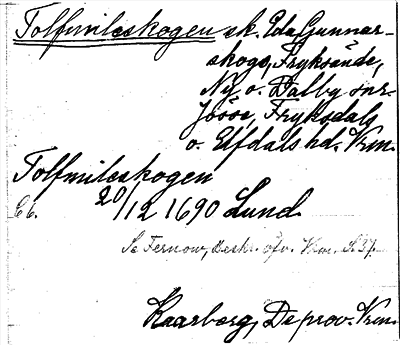 Tolfmilsskogen sk. Eda, Gunnar-
skogs, Fryksände,
Ny, o. Dalby snr
Jösse, Fryksdals
o. Elfdals hd. Vrm.
Tolfmileskogen
C6. 20/12 1690 Lund.
Se Fernow, Beskr. öfv. Vrm. S. 37.
Kaarberg, De prov. Vrm.